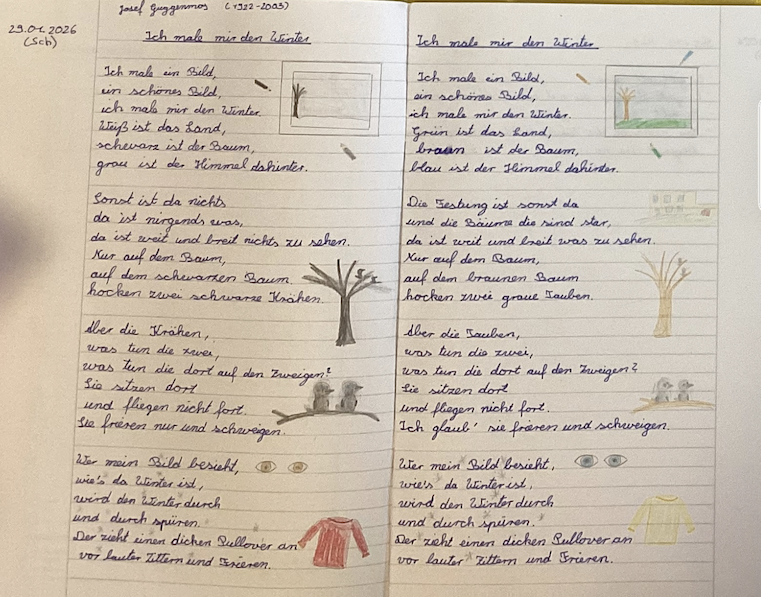 29.01.2026
(Sch)
Josef Guggenmos (1922-2003)
Ich male mir den Winter
Ich male ein Bild,
ein schönes Bild,
ich male mir den Winter.
Weiß ist das Land,
schwarz ist der Baum,
grau ist der Himmel dahinter.
Sonst ist da nichts
da ist nirgends was,
da ist weit und breit nichts zu sehen.
Nur auf dem Baum,
auf dem schwarzen Baum
hocken zwei schwarze Krähen.
Aber die Krähen,
was tun die zwei,
was tun die dort auf den Zweigen?
Sie sitzen dort
und fliegen nicht fort.
Sie frieren nur und schweigen.
Wer mein Bild besieht,
wie's da Winter ist,
wird den Winter durch
und durch spüren.
Der zieht einen dicken Pullover an
vor lauter Zittern und Frieren.
Ich male mir den Winter
Ich male ein Bild,
ein schönes Bild,
ich male mir den Winter.
Grün ist das Land,
braun ist der Baum,
blau ist der Himmel dahinter.
Die Festung ist sonst da
und die Bäume die sind star,
da ist weit und breit was zu sehen.
Nur auf dem Baum,
auf dem braunen Baum
hocken zwei graue Tauben.
Aber die Tauben,
was tun die zwei,
was tun die dort auf den Zweigen?
Sie sitzen dort
und fliegen nicht fort.
Ich glaub' sie frieren und schweigen.
Wer mein Bild besieht,
wie's da Winter ist,
wird den Winter durch
und durch spüren.
Der zieht einen dicken Pullover an
vor lauter Zittern und Frieren.